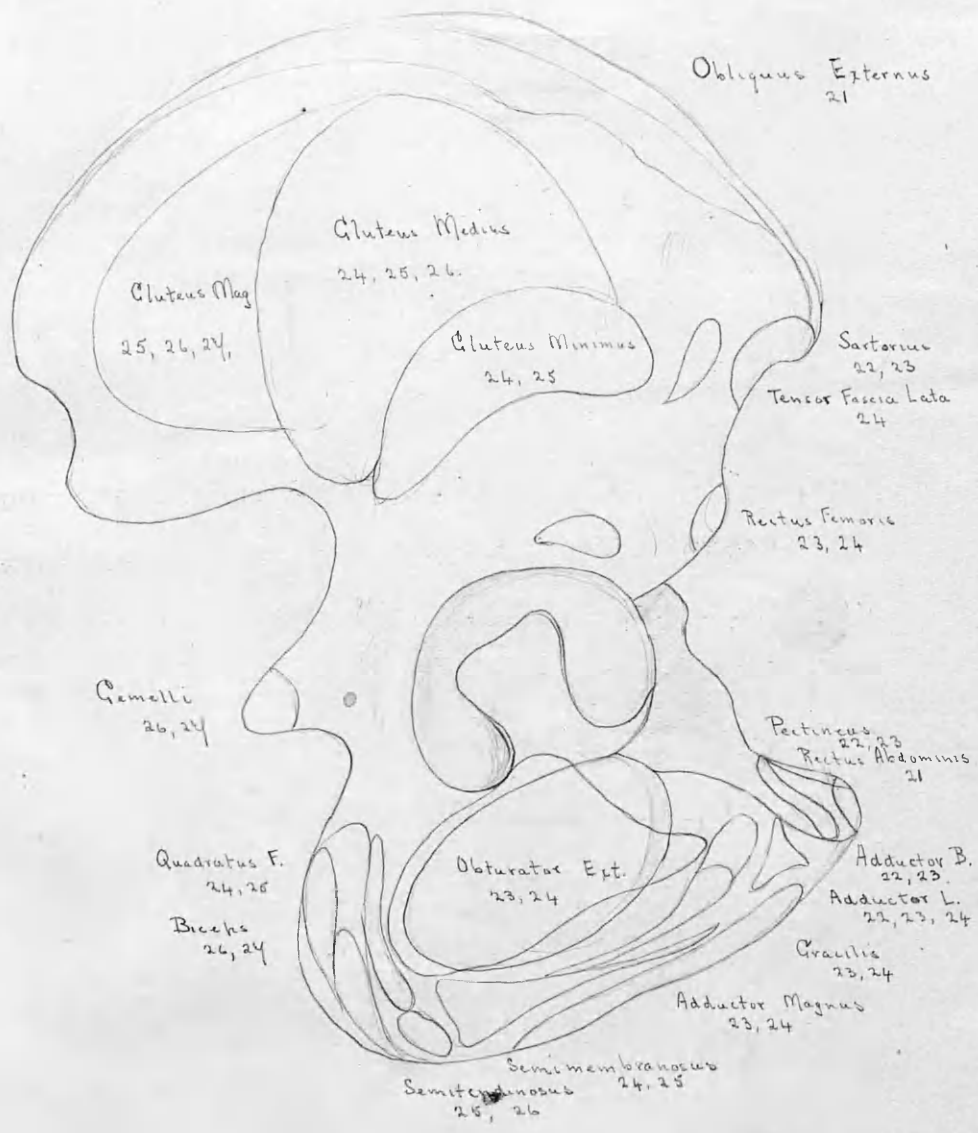 Obliquus Externus
21
Gluteus Medius
24, 25, 26.
Gluteus Mag
25, 26, 27,
Gluteus Minimus
24, 25
Sartorius
22, 23
Tensor Fascia Lata
24
Rectus Femoris
23, 24
Gemelli
26, 27
Pectineus
22, 23
Rectus Abdominis
21
Quadratus F.
24, 25
Obturator Ext.
23, 24
Adductor B.
22, 23
Adductor L.
22, 23, 24
Biceps
26, 27
Gracilis
23, 24
Adductor Magnus
23, 24
Semimembranosus
24, 25
Semitendunosus
25, 26